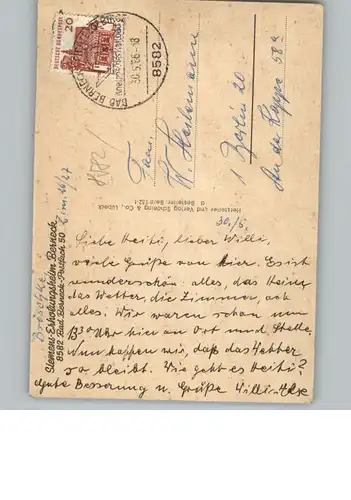 DEUTSCHE BUNDESPOST
20
BAD BERNECK
30.5.66-18
8582
Fam.
W. Heilemann
1 Berlin 20
An de Kappe 58a
Hersteller und Verlag Schöning & Co., Lübeck
Siemens-Erholungsheim Berneck
8582 Bad Berneck-Postfach 50
30./5.
Liebe Heiti, lieber Willi,
viele Grüße von hier. Es ist
wunderschön: alles, das Heim,
das Wetter, die Zimmer, ach
alles. Wir waren schon um
13³⁰ Uhr hier an Ort und Stelle.
Nun hoffen wir, daß das Wetter
so bleibt. Wie geht es Heiti?
Gute Besserung u. Grüße Willi u. Ilse